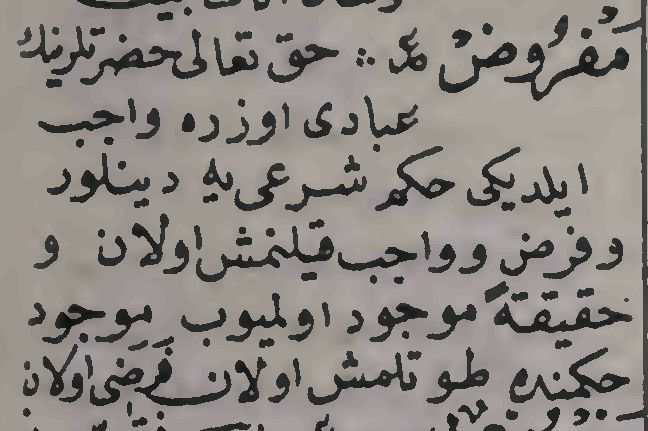 مَفْرُوضٌ عد ∴ حق تعالى حضرتلرينك
عبادى اوزره واجب
ايلديكى حكم شرعى يه دينلور
و فرض و واجب قيلنمش اولان و
حقيقةً موجود اولميوب موجود
حكمنده طوتلمش اولان فَرَضى اولان